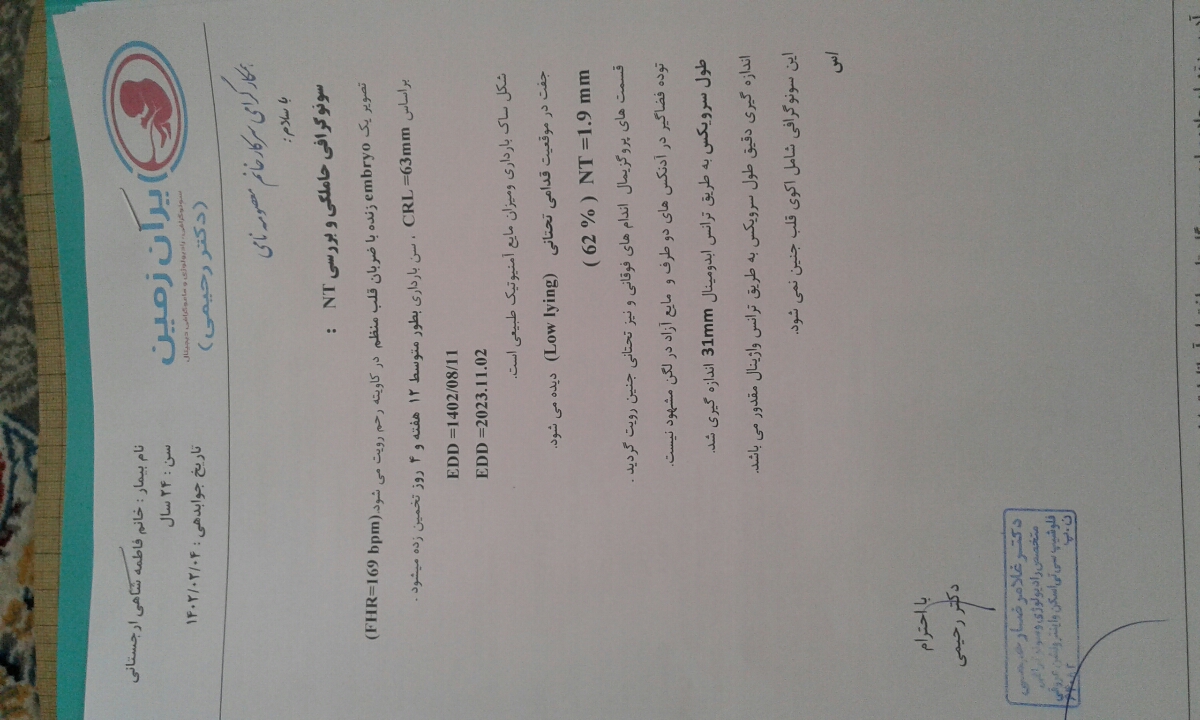 ایران زمین
سونوگرافی، رادیولوژی و ماموگرافی دیجیتال
(دکتر رحیمی)
نام بیمار : خانم فاطمه شاهی ارجستانی
سن : ۲۴ سال
تاریخ جوابدهی : ۱۴۰۲/۰۲/۰۴
همکار گرامی سرکار خانم معصومه نامی
با سلام :
سونوگرافی حاملگی و بررسی NT :
تصویر یک embryo زنده با ضربان قلب منظم در کاویته رحم رویت می شود.(FHR=169 bpm)
براساس CRL =63mm ، سن بارداری بطور متوسط ۱۲ هفته و ۴ روز تخمین زده میشود .
EDD =1402/08/11
EDD =2023.11.02
شکل ساک بارداری ومیزان مایع آمنیوتیک طبیعی است.
جفت در موقعیت قدامی تحتانی (Low lying) دیده می شود.
( 62 % ) NT =1.9 mm
قسمت های پروگزیمال اندام های فوقانی و نیز تحتانی جنین رویت گردید .
توده فضاگیر در آدنکس های دو طرف و مایع آزاد در لگن مشهود نیست.
طول سرویکس به طریق ترانس ابدومینال 31mm اندازه گیری شد.
اندازه گیری دقیق طول سرویکس به طریق ترانس واژینال مقدور می باشد.
این سونوگرافی شامل اکوی قلب جنین نمی شود.
/س
با احترام
دکتر رحیمی
دکتر غلامرضا رحیمی
متخصص رادیولوژی و سونوگرافی
فلوشیپ سی تی اسکن و اینترونشن عروقی
ن.پ